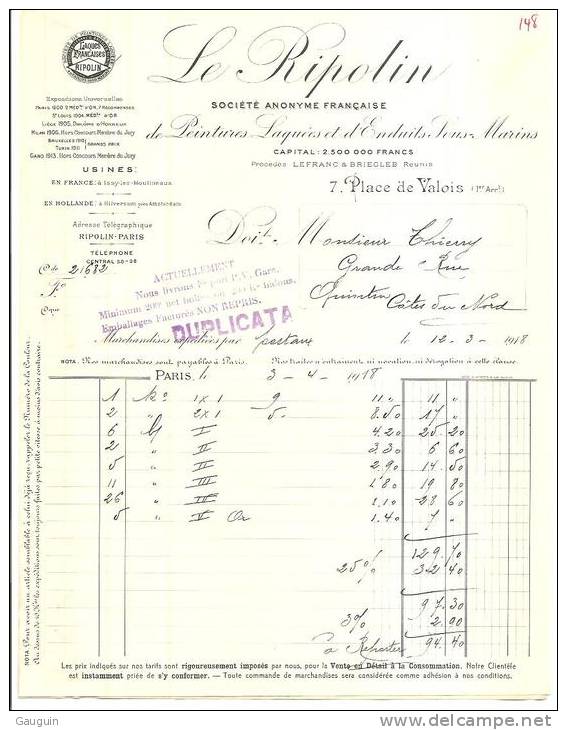 148
LAQUES
FRANÇAISES
RIPOLIN
Le Ripolin
SOCIÉTÉ ANONYME FRANÇAISE
de Peintures Laquées et d'Enduits Sous-Marins
CAPITAL: 2.500 000 FRANCS
Procédés LEFRANC & BRIEGLEB Réunis
7, Place de Valois (1er Arrt)
Expositions Universelles
PARIS 1900 2 MÉDlles D'OR, 7 RÉCOMPENSES
St LOUIS 1904 MÉDlle D'OR
LIÈGE 1905, DIPLÔME D'HONNEUR
MILAN 1906, Hors Concours Membre du Jury
BRUXELLES 1910
TURIN 1911 GRANDS PRIX
GAND 1913. Hors Concours Membre du Jury
USINES:
EN FRANCE: à Issy-les-Moulineaux
EN HOLLANDE: à Hilversum près Amsterdam
Adresse Télégraphique
RIPOLIN-PARIS
TÉLÉPHONE
CENTRAL
Cde de 21682
Fo
Doit Monsieur Thierry
Grande Rue
Quintin
Côtes du Nord
ACTUELLEMENT
Nous livrons en port P.V. Gare.
Minimum net
Emballages Facturés NON REPRIS.
DUPLICATA
Marchandises expédiées par postaux le 12-3-1918
NOTA. Nos marchandises sont payables à Paris. Nos traites n'entraînent ni novation, ni dérogation à cette clause.
PARIS, le 3-4-1918
1 1x1 9 11 " 11 "
2 " 2x1 5- 8.50 17 "
6 I 4.20 25 20
2 " II 3.30 6 60
5 " II 2.90 14 50
11 " III 1.80 19 80
26 " IV 1.10 28 60
5 " V Or 1.40 7 "
129.70
25% 32 40
97.30
3% 2.90
à Reporter 94.40
NOTA. Pour avoir un article semblable à celui déjà reçu, rappeler le Numéro de la Couleur.
Au dessous de 10 Kos les expéditions sont toujours faites par petite vitesse à moins d'avis contraire.
Les prix indiqués sur nos tarifs sont rigoureusement imposés par nous, pour la Vente en Détail à la Consommation. Notre Clientèle
est instamment priée de s'y conformer. — Toute commande de marchandises sera considérée comme adhésion à nos conditions.
Gauguin
delcampe.net